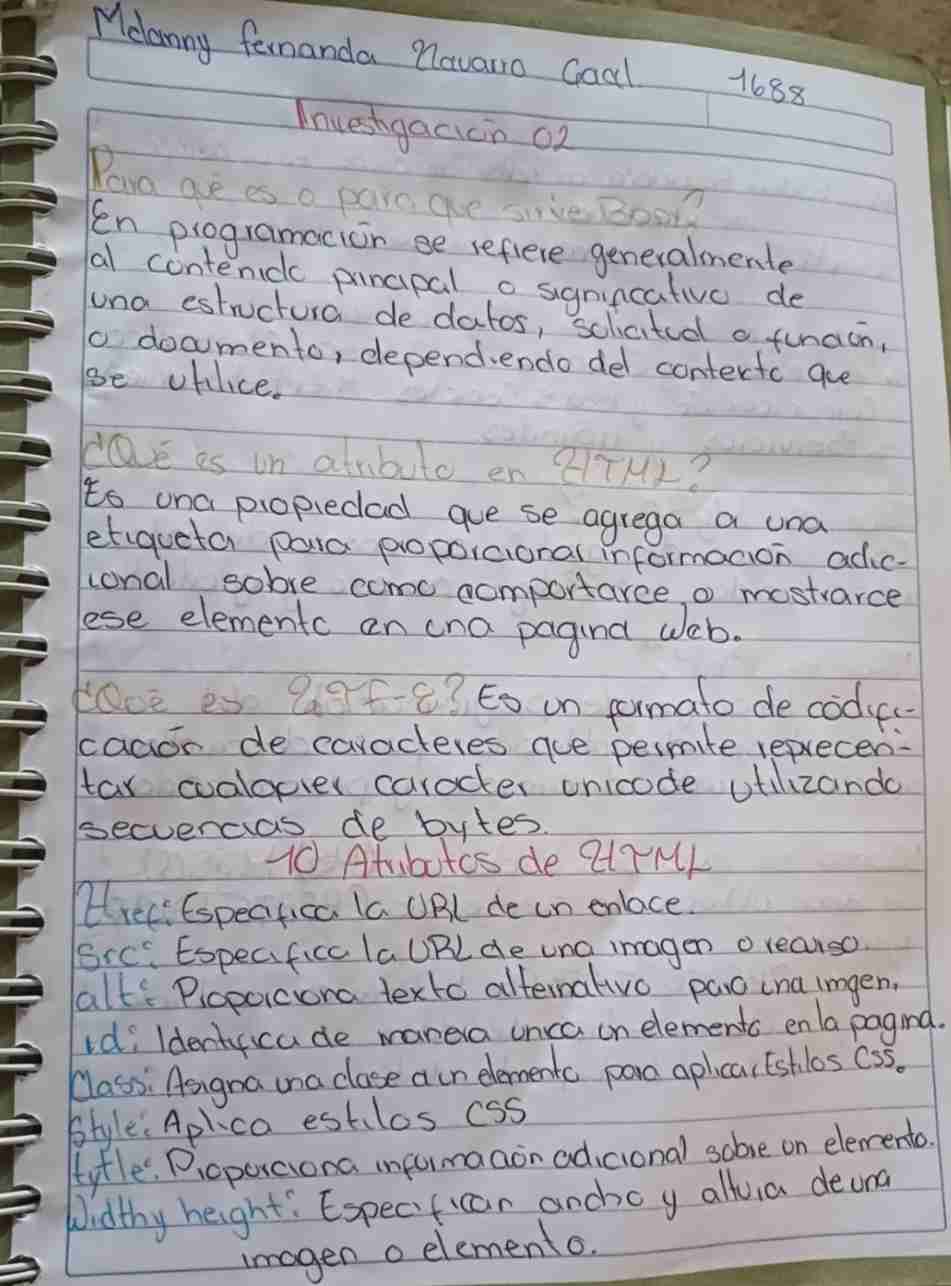 Melanny fernanda Navarro Gaal 1688
Investigación 02
Para qué es o para que sirve Body?
En programación se refiere generalmente
al contenido principal o significativo de
una estructura de datos, solicitud o función,
o documento, dependiendo del contexto que
se utilice.
¿Qué es un atributo en HTML?
Es una propiedad que se agrega a una
etiqueta para proporcionar información adic-
ional sobre como comportarce o mostrarce
ese elemento en una pagina web.
¿Qué es UTF-8? Es un formato de códifi-
cación de caracteres que permite reprecen-
tar cualquier caracter unicode utilizando
secuencias de bytes.
10 Atributos de HTML
Href: Especifica la URL de un enlace.
Src: Especifica la URL de una imagen o recurso.
alt: Proporciona texto alternativo para una imgen.
id: Identifica de manera unica un elemento en la pagina.
Class: Asigna una clase a un elemento para aplicar Estilos CSS.
Style: Aplica estilos CSS
tytle: Proporciona información adicional sobre un elemento.
Width y height: Especifican ancho y altura de una
imagen o elemento.